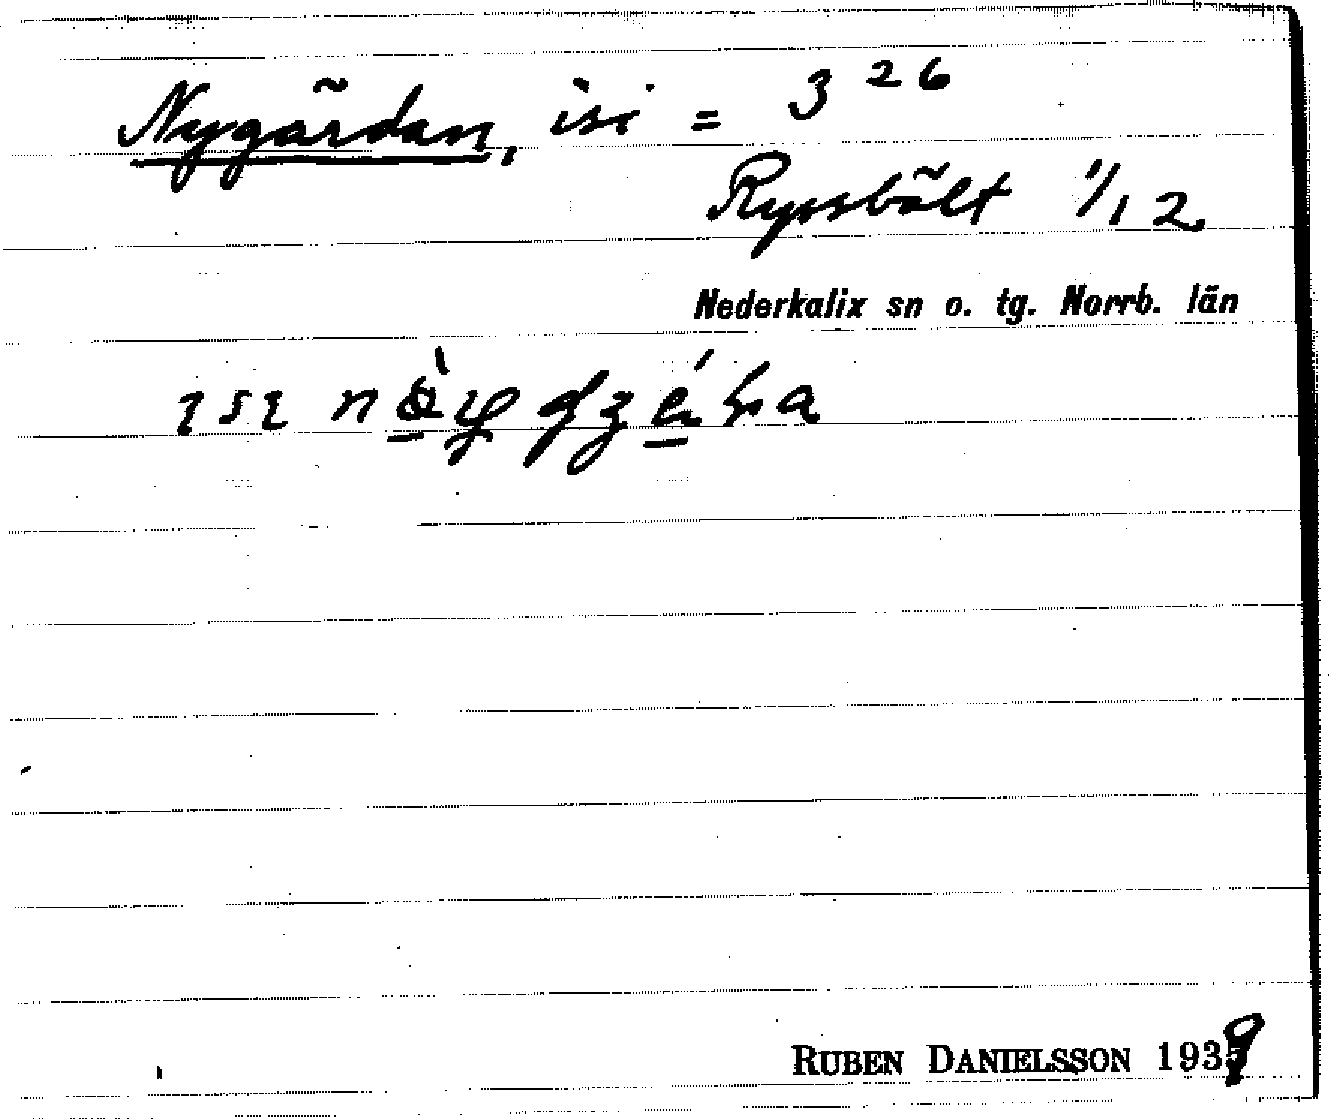 Nygårdan, isi = 3 26
Ryssbält 1/12
Nederkalix sn o. tg. Norrb. län
ısı
RUBEN DANIELSSON 1939